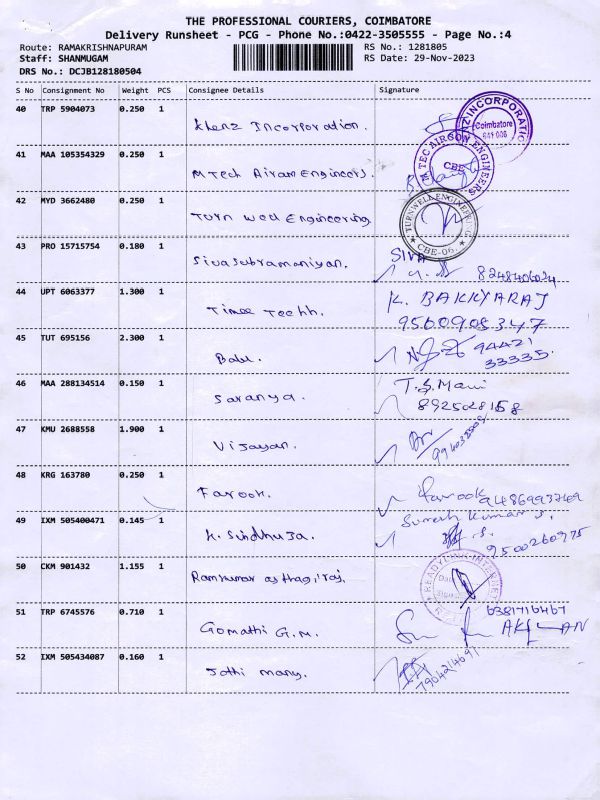 THE PROFESSIONAL COURIERS, COIMBATORE
Delivery Runsheet - PCG - Phone No.:0422-3505555 - Page No.:4
Route: RAMAKRISHNAPURAM RS No.: 1281805
Staff: SHANMUGAM RS Date: 29-Nov-2023
DRS No.: DCJB128180504
S No Consignment No Weight PCS Consignee Details Signature
40 TRP 5904073 0.250 1
Khenz Incorporation.
Z INCORPORATION
Coimbatore
641 006
41 MAA 105354329 0.250 1
MTech Airam Engineers.
M TEC AIRCON ENGINEERS
CBE
42 MYD 3662480 0.250 1
Turn wed Engineering
TURNWELL ENGINEERING
CBE-06.
43 PRO 15715754 0.180 1
Sivasubramaniyan.
SIVA
8248406034
44 UPT 6063377 1.300 1
Timee Techh.
K. BAKKYARAJ
9500905347
45 TUT 695156 2.300 1
Babu.
94421
33335.
46 MAA 288134514 0.150 1
Saranya.
T.S. Mani
8925028158
47 KMU 2688558 1.900 1
Vijayan.
48 KRG 163780 0.250 1
Farook.
Farook
9486993769
49 IXM 505400471 0.145 1
K. Sindhuja.
Suresh Kumar S.
9500260975
50 CKM 901432 1.155 1
Ramkumar
51 TRP 6745576 0.710 1
Gomathi G.M.
6381716467
52 IXM 505434087 0.160 1
Jothi many.
7904214691